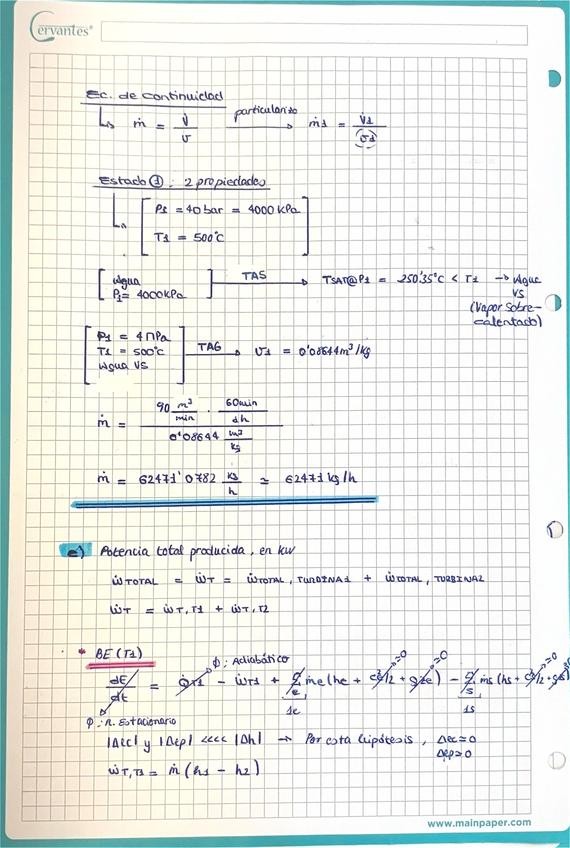 Cervantes®
Ec. de continuidad
↳ ṁ = V̇/v  particularizo → ṁ1 = V̇1/(v1)
Estado ①: 2 propiedades
↳ [ P1 = 40 bar = 4000 KPa
T1 = 500°C ]
[ Agua
P1 = 4000 KPa ] TA5 → TSAT@P1 = 250'35°C < T1 → Agua
VS
(Vapor Sobre-
calentado)
[ P1 = 4 MPa
T1 = 500°C
Agua VS ] TA6 → v1 = 0'08644 m³/kg
ṁ = (90 m³/min · 60min/1h) / (0'08644 m³/kg)
ṁ = 62471'0782 kg/h ≃ 62471 kg/h
e) Potencia total producida, en kW
ẆTOTAL = ẆT = ẆTOTAL, TURBINA1 + ẆTOTAL, TURBINA2
ẆT = ẆT,T1 + ẆT,T2
* BE (T1)
Ø: Adiabático =0 =0 =0 =0
dE/dt = Q̇T1 - ẆT1 + Σe ṁe(he + ce²/2 + gze) - Σs ṁs(hs + cs²/2 + gzs)
1e 1s
Ø: R. Estacionario
|Δec| y |Δep| <<<< |Δh| → Por esta hipótesis, Δec≃0
Δep≃0
ẆT,T1 = ṁ (h1 - h2)
www.mainpaper.com